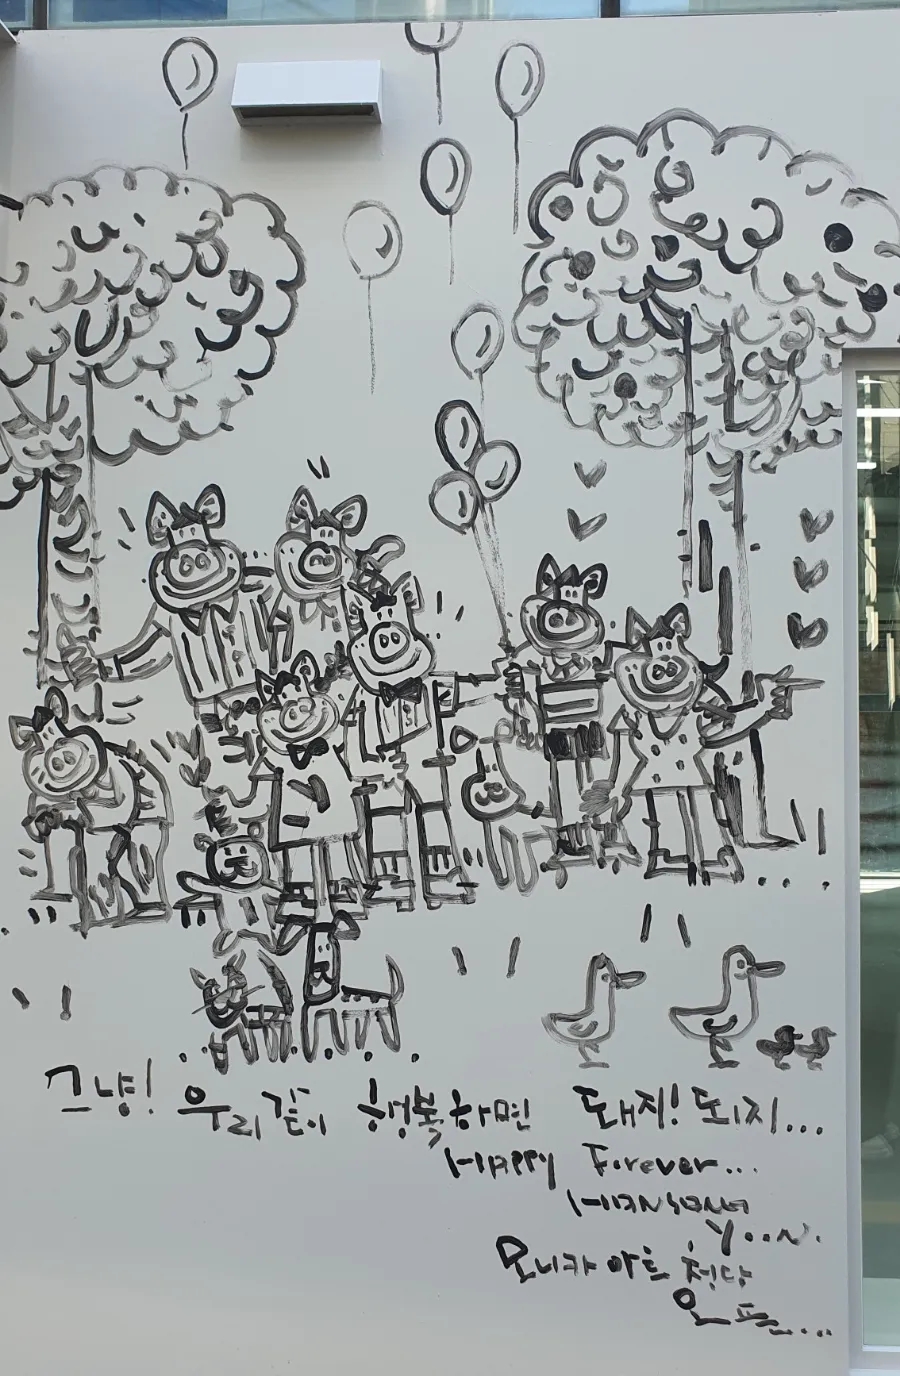 그냥! 우리 같이 행복하면 돼지! 되지...
Happy Forever...
Yoon.
모니카 아트 청담
오픈...